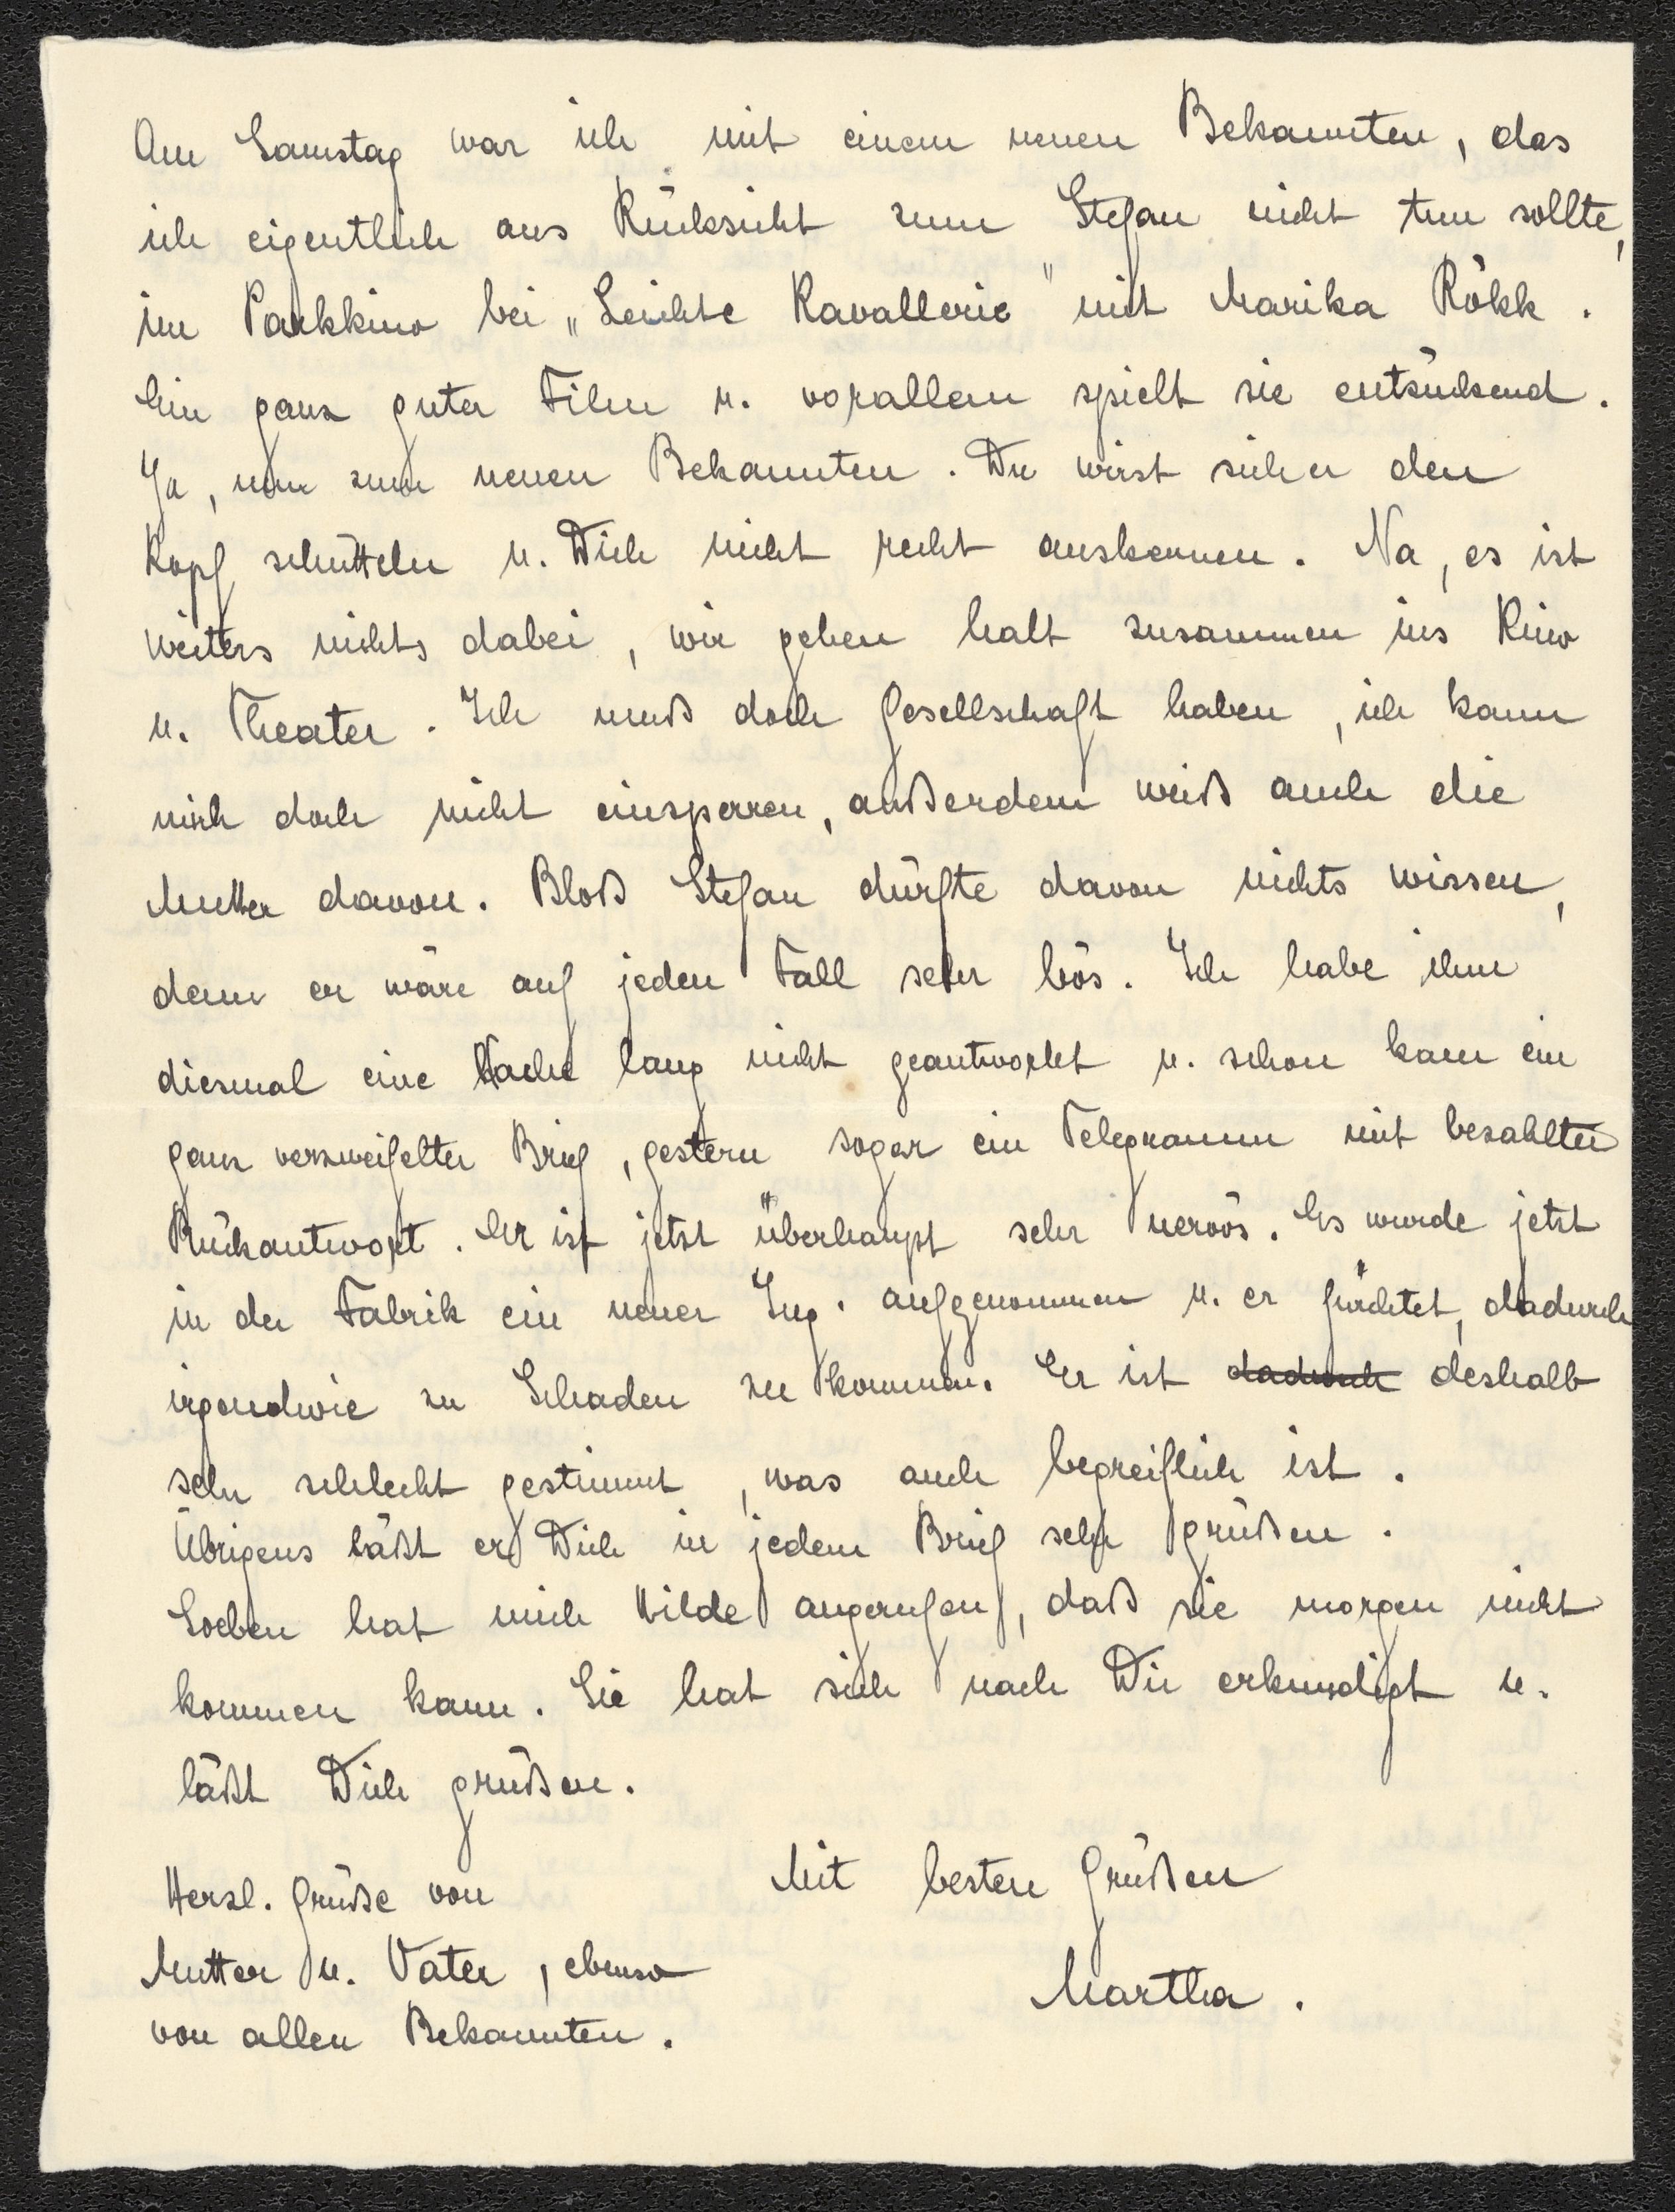 Am Samstag war ich mit einem neuen Bekannten, das
ich eigentlich aus Rücksicht zum Stefan nicht tun sollte,
im Parkkino bei „Leichte Kavallerie" mit Marika Rökk.
Ein ganz guter Film u. vorallem spielt sie entzückend.
Ja, nun zum neuen Bekannten. Du wirst sicher den
Kopf schütteln u. Dich nicht recht auskennen. Na, es ist
weiters nichts dabei, wir gehen halt zusammen ins Kino
u. Theater. Ich muß doch Gesellschaft haben, ich kann
mich doch nicht einsperren, außerdem weiß auch die
Mutter davon. Bloß Stefan dürfte davon nichts wissen,
denn er wäre auf jeden Fall sehr bös. Ich habe ihm
diesmal eine Woche lang nicht geantwortet u. schon kam ein
ganz verzweifelter Brief, gestern sogar ein Telegramm mit bezahlter
Rückantwort. Er ist jetzt überhaupt sehr nervös. Es wurde jetzt
in der Fabrik ein neuer Ing. aufgenommen u. er fürchtet, dadurch
irgendwie zu Schaden zu kommen. Er ist dadurch deshalb
sehr schlecht gestimmt, was auch begreiflich ist.
Übrigens läßt er Dich in jedem Brief sehr grüßen.
Soeben hat mich Hilde angerufen, daß sie morgen nicht
kommen kann. Sie hat sich nach Dir erkundigt u.
läßt Dich grüßen.
Mit besten Grüßen
Martha.
Herzl. Grüße von
Mutter u. Vater, ebenso
von allen Bekannten.